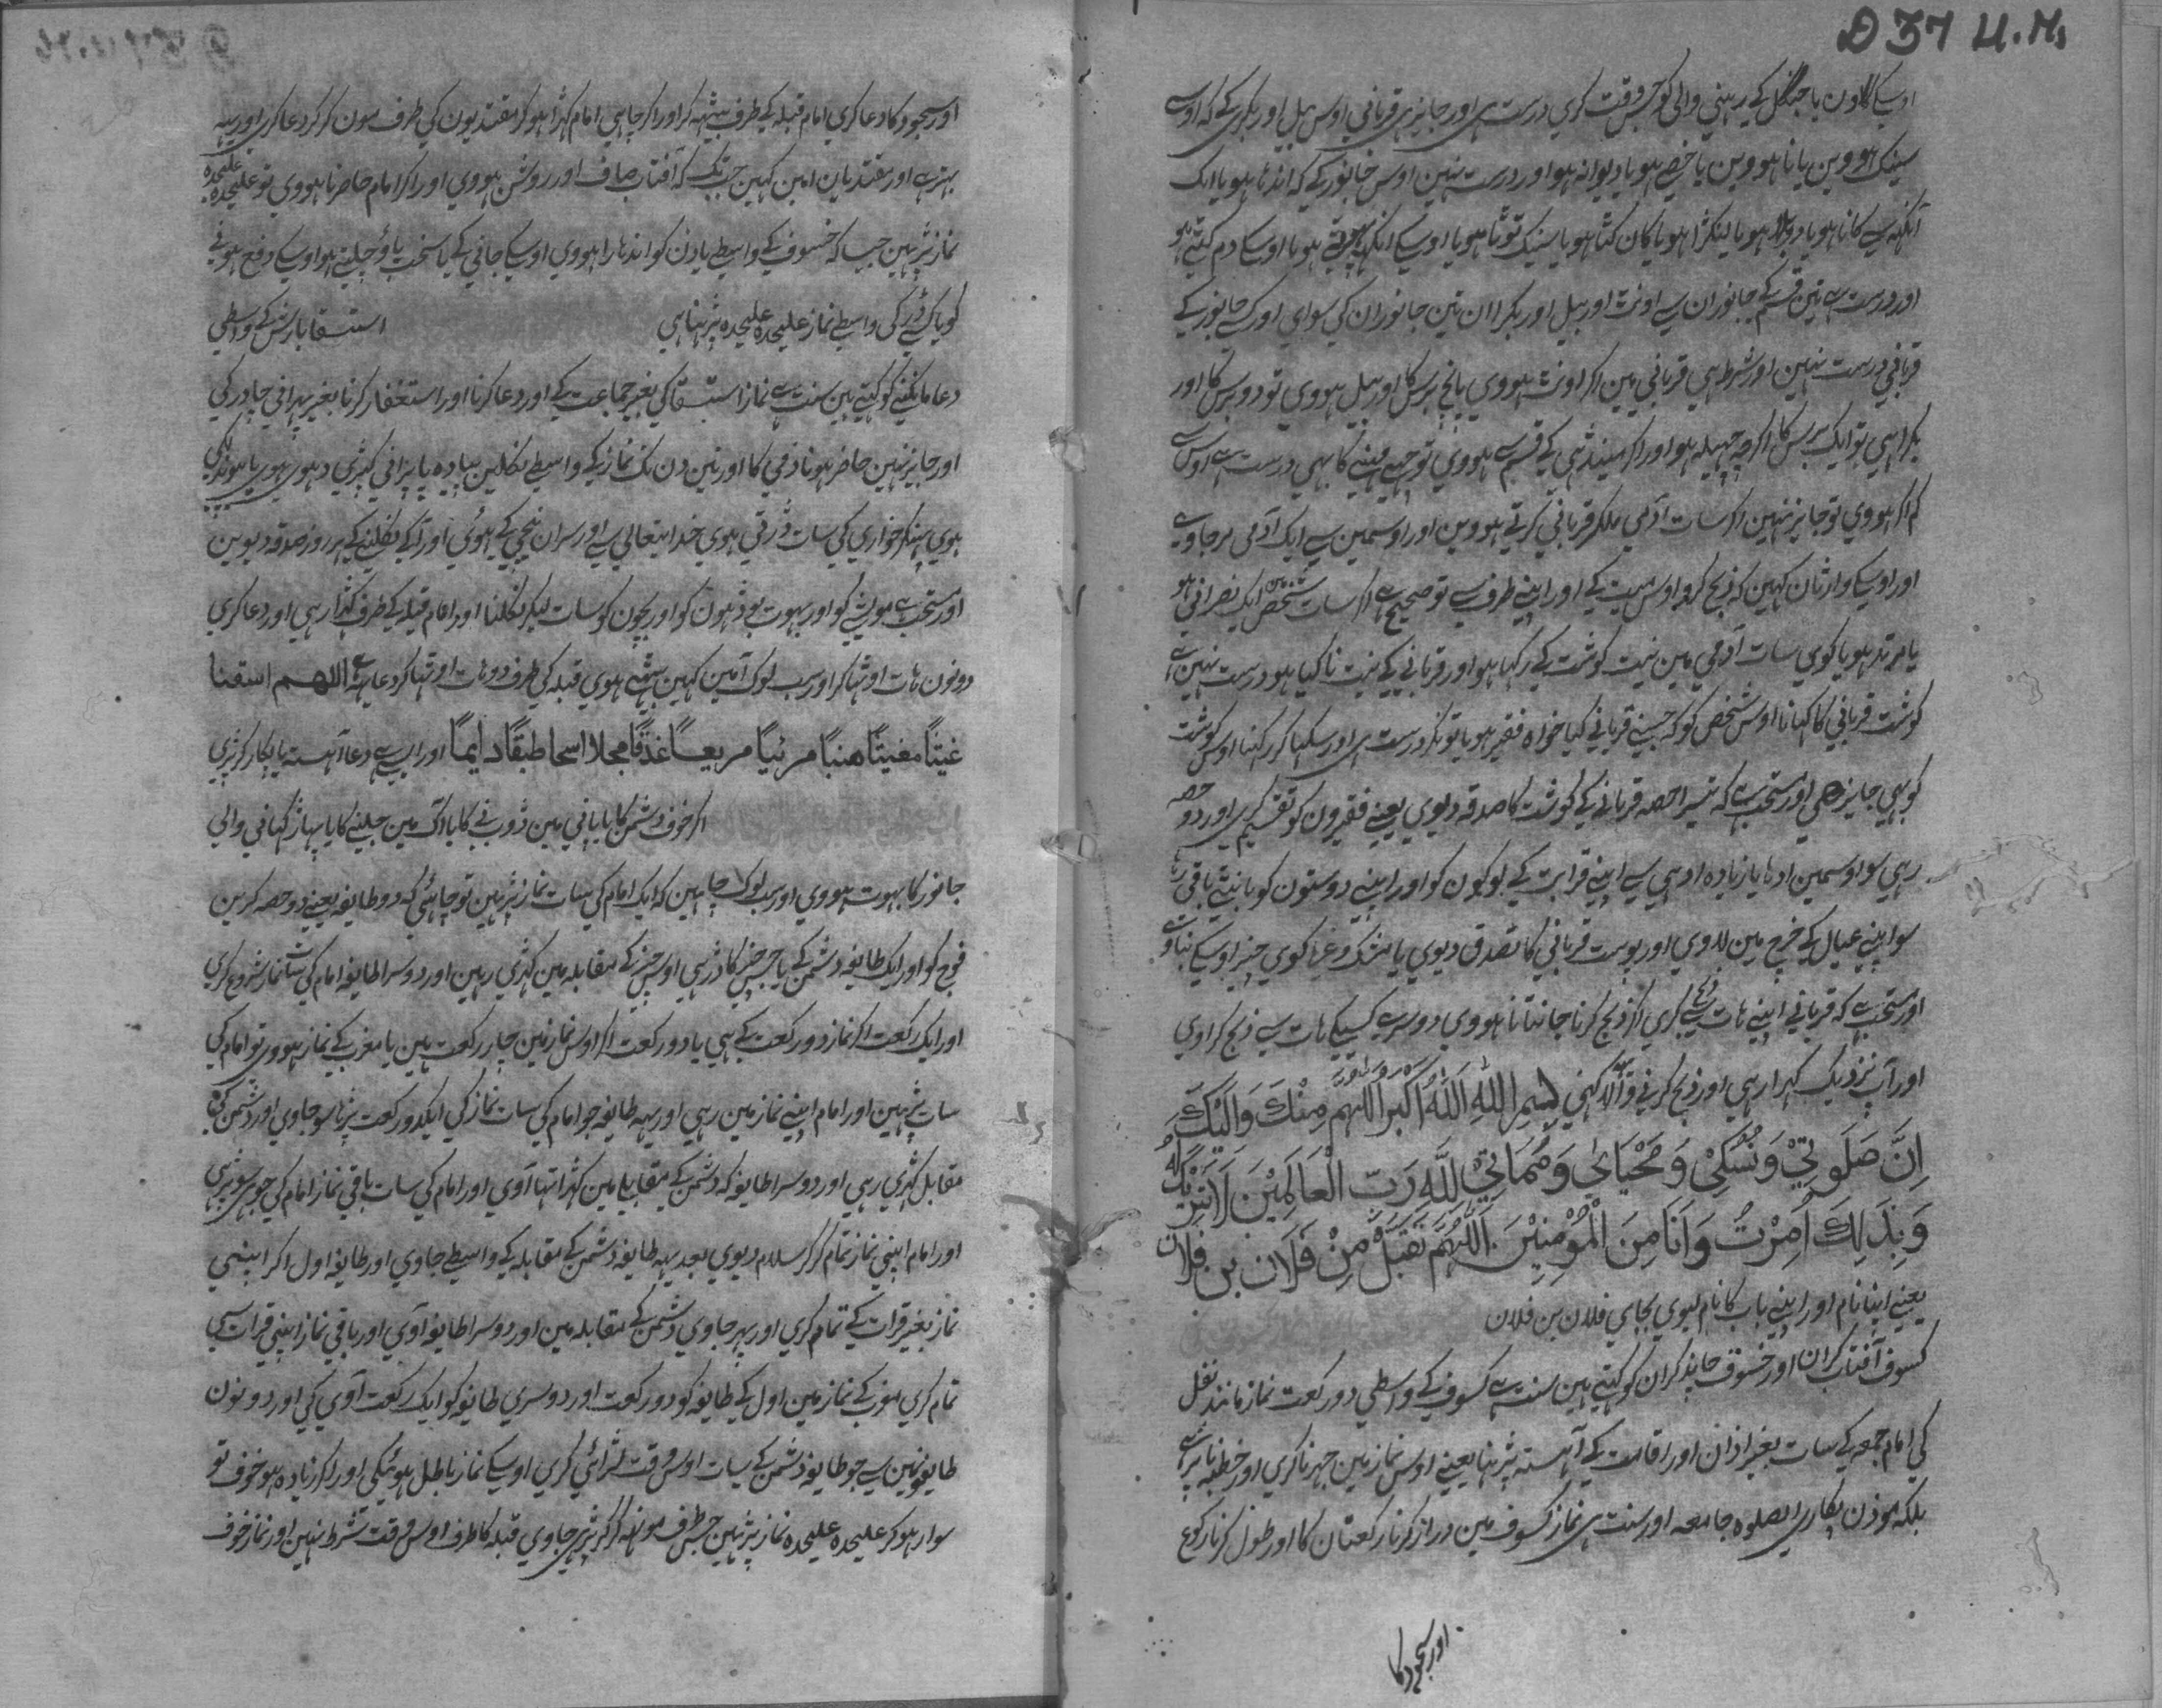 D 37 U.M.
اوسکا گاون یا جنگل کے رہنے والی کو جس وقت کری درست ہی اور جایز ہی قربانی اوس بیل اور بکری کے کہ اوسے
سینک هووین یا نا هووین یا خصے هو یا دیوانہ هو اور درست نہین اوس جانور کے کہ اندها هو یا ایک
آنکہہ سے کانا هو یا دوبلا هو یا لینکڑا هو یا کان کٹا هو یا سینک توٹا هو یا اوسکے انکهہ پهرتے هو یا اوسکا دم کٹے هو
اور درست ہے تین قسم کے جانوران سے اونٹ اور بیل اور بکرا ان تین جانوران کی سوای اور کسے جانور کے
قربانی درست نہین اور شرط ہی قربانی مین اگر اونٹ هووی پانچ برس کا اور بیل هووی تو دو برس کا اور
بکرا ہی تو ایک برس کا اگرچہ چہیلہ هو اور اگر مینڈهی کے قسم سے هووی تو چہے مہینے کا بہی درست ہے اوس سے
کم اگر هووی تو جایز نہین اگر سات آدمی ملکر قربانی کرتے هووین اور اوسمین سے ایک آدمی مرجاوے
اور اوسکے وارثان کہین کہ ذبح کرو اوس میت کے اور اپنے طرف سے تو صحیح ہے اگر سات شخص مین ایک نصرانی هو
یا مرتد هو یا کوی سات آدمی مین نیت گوشت کے رکہا هو اور قربانی کے نیت نا کیا هو درست نہین ہے
گوشت قربانی کا کہانا اوس شخص کو کہ جسنے قربانی کیا خواه فقیر هو یا تونگر درست ہی اور سکہا کر رکہنا اوس گوشت
کو بہی جایز هی اور مستحب ہے کہ تیسرا حصہ قربانی کے گوشت کا صدقہ دیوی یعنے فقیرون کو تقسیم کری اور دو حصہ
رہی سو اوسمین ادها یا زیاده ادهی سے اپنے قرابت کے لوکون کو اور اپنے دوستون کو بانٹے باقی رہا
سو اپنے عیال کے خرچ مین لاوی اور پوست قربانی کا تصدق دیوی یا مشک وغیرہ کوی چیز اوسکے بناوے
اور مستحب ہے کہ قربانی اپنے هات سے کری اگر ذبح کرنا جانتا نا هووی دوسرے کسیکے هات سے ذبح کراوی
اور آپ نزدیک کہڑا رہی اور ذبح کرنے والا کہی بِسْمِ اللهِ اَللهُ اَكْبَرُ اَللّٰهُمَّ مِنْكَ وَاِلَيْكَ
اِنَّ صَلَوتِيْ وَنُسُكِيْ وَمَحْيَايَ وَمَمَاتِيْ لِلّٰهِ رَبِّ الْعَالَمِيْنَ لَا شَرِيْكَ لَهُ
وَبِذَلِكَ اُمِرْتُ وَاَنَا مِنَ الْمُؤْمِنِيْنَ اَللّٰهُمَّ تَقَبَّلْ مِنْ فُلَانِ بن فلان
یعنے اپنا نام اور اپنے باپ کا نام لیوی بجای فلان بن فلان
کسوف آفتاب گران اور خسوف چاند گران کو کہتے ہین سنت ہے کسوف کے واسطی دو رکعت نماز مانند نفل
کی امام جمعہ کے سات بغیر اذان اور اقامت کے آہستہ پڑہنا یعنے اوس نماز مین جہر نا کری اور خطبہ نا پڑہے
بلکہ موذن پکاری الصلوة جامعہ اور سنت ہی نماز کسوف مین دراز کرنا رکعتان کا اور طول کرنا رکوع
اور سجود کا
اور سجود کا دعا کری امام قبلہ کے طرف بیٹہہ کر اور اگر چاہی امام کہڑا هو کر مقتدیون کی طرف مون کر کر دعا کری اور یہہ
بہتر ہے اور مقتدیان امین کہین جب تک کہ آفتاب صاف اور روشن هووی اور اگر امام حاضر نا هووی تو علیحدہ علیحدہ
نماز پڑہین جیسا کہ خسوف کے واسطے یا دن کو اندهارا هووی اوسکے جانی کے یا سخت باؤ چلنے هو اوسکے دفع هونے
کو یا کسے ڈر کی واسطے نماز علیحدہ علیحدہ پڑہنا ہی استسقا بارش کے واسطی
دعا مانگنے کو کہتے ہین سنت ہے نماز استسقا کی بغیر جماعت کے اور دعا کرنا اور استغفار کرنا بغیر پہرانی چادر کی
اور جایز نہین حاضر هونا ذمی کا اور تین دن تک نماز کے واسطے نکلین پیاده پا پرانی کپڑی دهوی هوی یا پیوند لگی
هوی پہنکر خواری کی سات ڈرتی هوی خدایتعالی سے اور سران نیچی کے هوئی اور آگے نکلنے کے ہر روز صدقہ دیوین
اور مستحب ہے مویشے کو اور بہوت بوڈهون کو اور بچون کو سات لیکر نکلنا اور امام قبلہ کے طرف کہڑا رہی اور دعا کری
دونون هات اوٹہا کر اور سب لوک آمین کہین بیٹہے هوی قبلہ کی طرف دو هات اوٹہا کر دعا یہہ ہے اللهم اسقنا
غیثًا مغیثًا هنیًا مرئیًا مریعًا غدقًا مجللا سحا طبقًا دایمًا اور ایسے دعا آہستہ یا پکار کر پڑہی
اگر خوف دشمن کا یا پانی مین ڈوربنے کا یا آگ مین جلنے کا یا پہاڑ کہانی والی
جانور کا بہوت هووی اور سب لوک چاہین کہ ایک امام کی سات نماز پڑہین تو چاہئی کہ دو طایفہ یعنے دو حصہ کرین
فوج کو اور ایک طایفہ دشمن کے یا جس چیز کا ڈر ہی اوس چیز کے مقابلہ مین کہڑی رہین اور دوسرا طایفہ امام کی سات نماز شروع کری
اور ایک رکعت اگر نماز دو رکعت کے ہی یا دو رکعت اگر اوس نماز مین چار رکعت ہین یا مغرب کے نماز هووی تو امام کی
سات پڑہین اور امام اپنے نماز مین رہی اور یہہ طایفہ جو امام کی سات نماز کی ایک دو رکعت پڑہا سو جاوی اور دشمن کے
مقابل کہڑی رہی اور دوسرا طایفہ کہ دشمن کے مقابلے مین کہڑا تہا آوی اور امام کی سات باقی نماز امام کی جو رہی سو پڑہی
اور امام اپنی نماز تمام کر کر سلام دیوی بعد یہہ طایفہ دشمن کے مقابلہ کے واسطے جاوی اور طایفہ اول آکر اپنی
نماز بغیر قرات کے تمام کری اور پہر جاوی دشمن کے مقابلہ مین اور دوسرا طایفہ آوی اور باقی نماز اپنی قرات سے
تمام کری مغرب کے نماز مین اول کے طایفہ کو دو رکعت اور دوسری طایفہ کو ایک رکعت آوی کی اور دونون
طایفہ مین سے جو طایفہ دشمن کے سات اوس وقت لڑائی کری اوسکے نماز باطل هوئیکی اور اگر زیاده هو خوف تو
سوار هو کر علیحدہ علیحدہ نماز پڑہین جس طرف مونہہ کر کر پڑہی جاوی قبلہ کا طرف اوس وقت شرط نہین اور نماز خوف